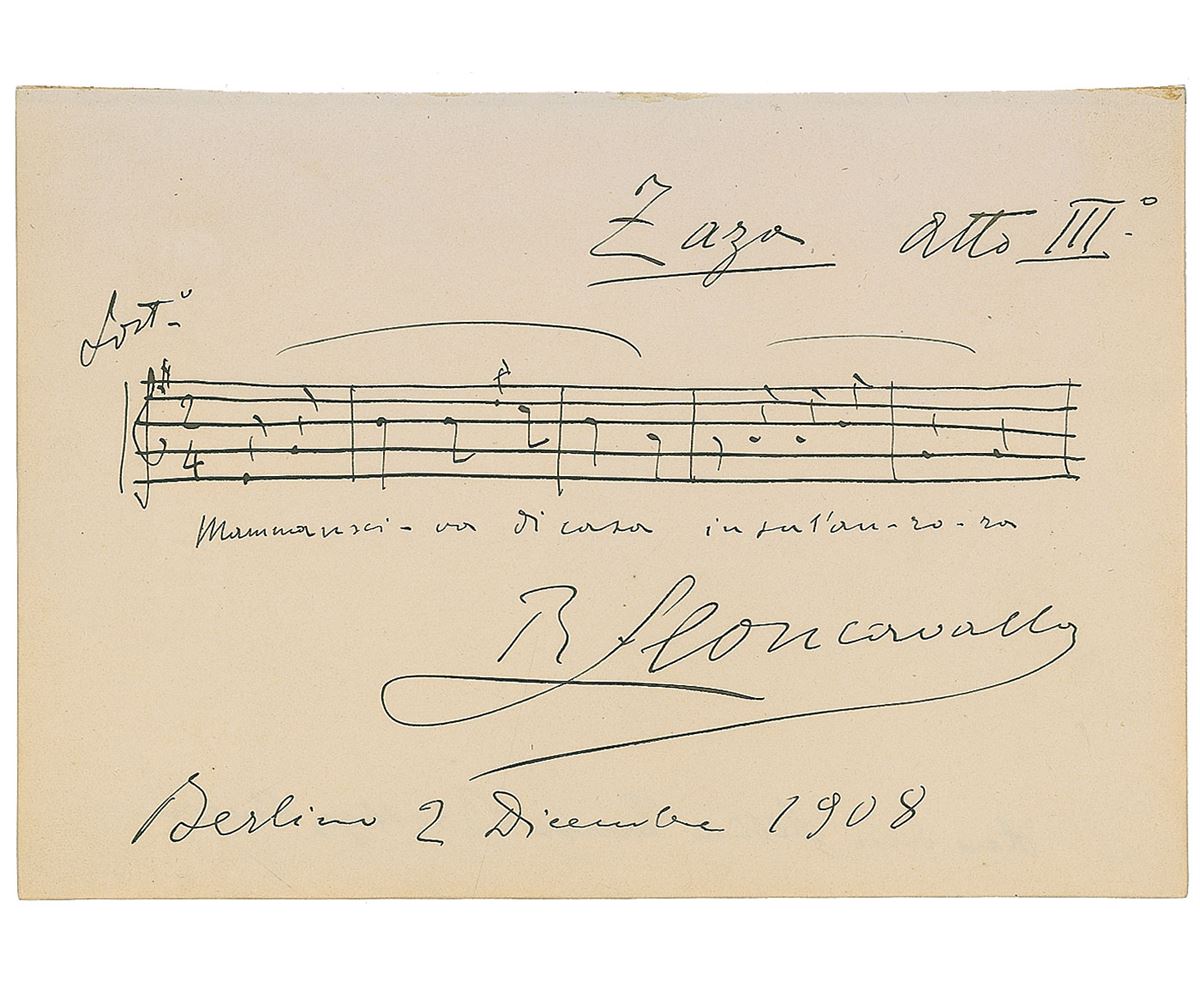 Zaza atto III.º
Sost.º
2
4
Mammausci-va di casa in sul'au-ro-ra
R Leoncavallo
Berlino 2 Dicembre 1908